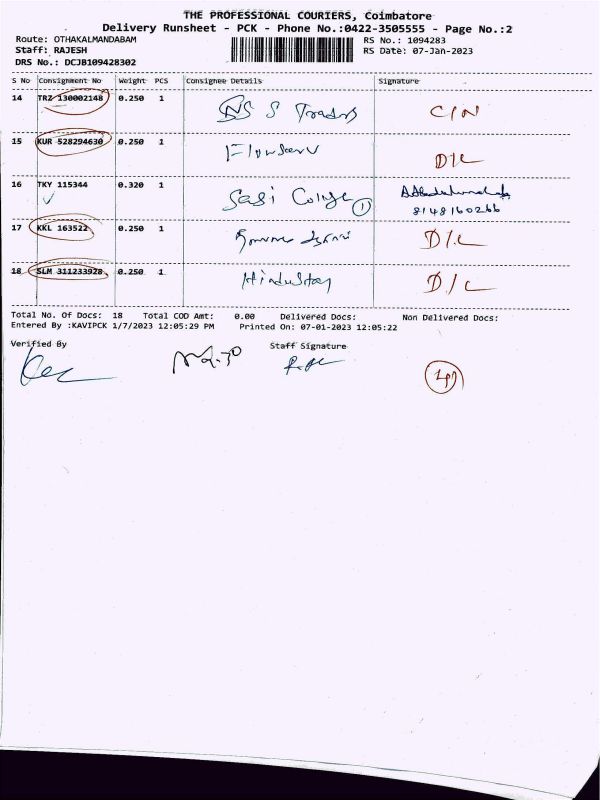 THE PROFESSIONAL COURIERS, Coimbatore
Delivery Runsheet - PCK - Phone No.:0422-3505555 - Page No.:2
Route: OTHAKALMANDABAM
RS No.: 1094283
Staff: RAJESH
RS Date: 07-Jan-2023
DRS No.: DCJB109428302
S No Consignment No Weight PCS Consignee Details Signature
14 TRZ 130002148 0.250 1 S Traders C/N
15 KUR 528294630 0.250 1 D/C
16 TKY 115344 0.320 1 Sasi 1
8148160266
17 KKL 163522 0.250 1 D/C
18 SLM 311233928 0.250 1 Hindustan D/C
Total No. Of Docs: 18 Total COD Amt: 0.00 Delivered Docs: Non Delivered Docs:
Entered By :KAVIPCK 1/7/2023 12:05:29 PM Printed On: 07-01-2023 12:05:22
Verified By Staff Signature